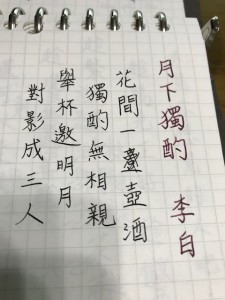 月下獨酌 李白
花間一壺酒
獨酌無相親
舉杯邀明月
對影成三人